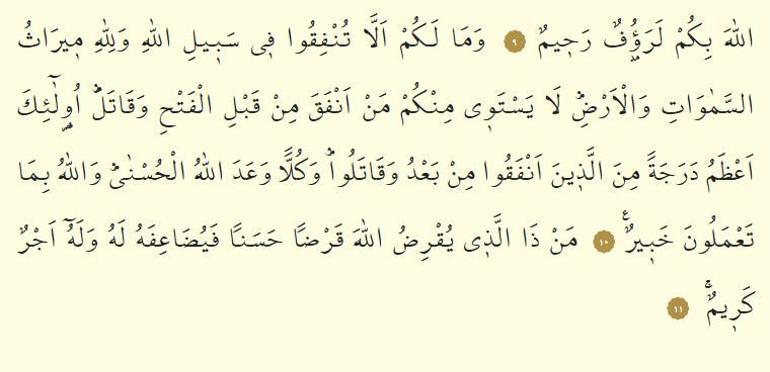 اللهَ بِكُمْ لَرَؤُ۫فٌ رَح۪يمٌ ﴿٩﴾ وَمَا لَكُمْ اَلَّا تُنْفِقُوا ف۪ي سَب۪يلِ اللهِ وَلِلهِ م۪يرَاثُ
السَّمٰوَاتِ وَالْاَرْضِۜ لَا يَسْتَو۪ي مِنْكُمْ مَنْ اَنْفَقَ مِنْ قَبْلِ الْفَتْحِ وَقَاتَلَۜ اُو۬لٰٓئِكَ
اَعْظَمُ دَرَجَةً مِنَ الَّذ۪ينَ اَنْفَقُوا مِنْ بَعْدُ وَقَاتَلُواۜ وَكُلًّا وَعَدَ اللهُ الْحُسْنٰىۜ وَاللهُ بِمَا
تَعْمَلُونَ خَب۪يرٌ۟ ﴿١٠﴾ مَنْ ذَا الَّذ۪ي يُقْرِضُ اللهَ قَرْضًا حَسَنًا فَيُضَاعِفَهُ لَهُ وَلَهُٓ اَجْرٌ
كَر۪يمٌۚ ﴿١١﴾